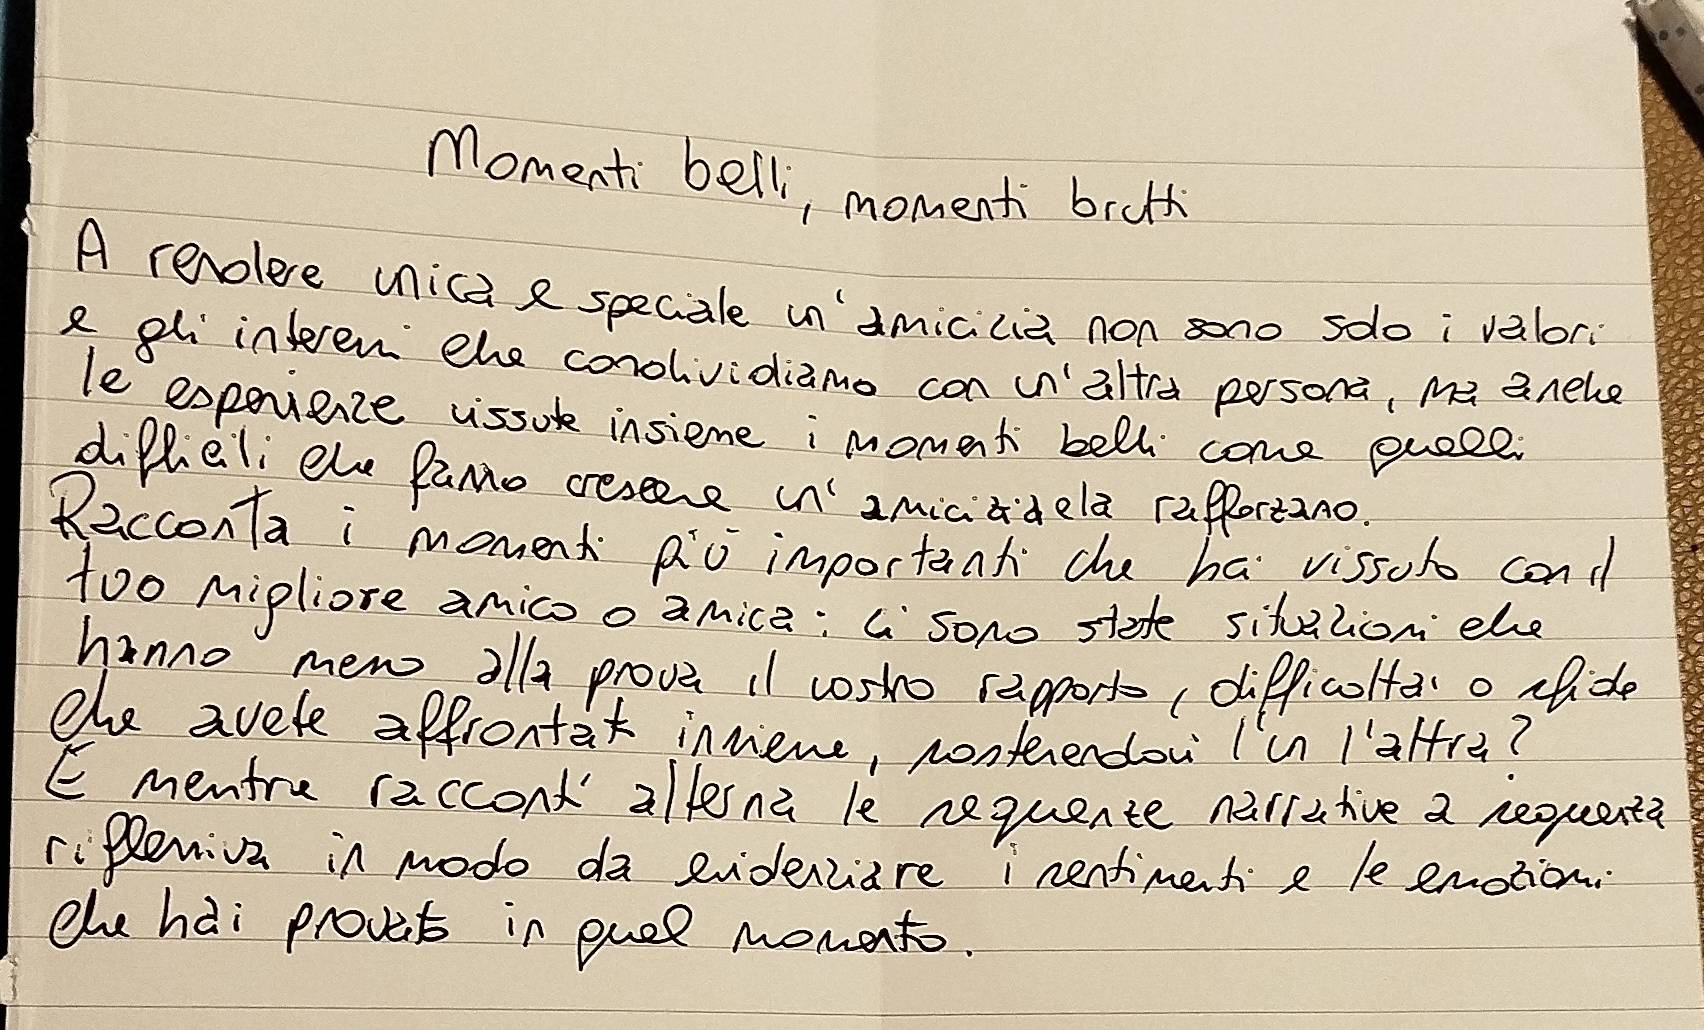 Momenti belli, momenti brutti
A rendere unica e speciale un'amicizia non sono solo i valori
e gli interessi che condividiamo con un'altra persona, ma anche
le esperienze vissute insieme i momenti belli come quelli
difficili che fanno crescere un'amicizia e la rafforzano.
Racconta i momenti più importanti che hai vissuto con il
tuo migliore amico o amica: ci sono state situazioni che
hanno messo alla prova il vostro rapporto, difficoltà o sfide
che avete affrontato insieme, sostenendovi l'un l'altra?
E mentre racconti alterna le sequenze narrative a sequenza
riflessiva in modo da evidenziare i sentimenti e le emozioni
che hai provato in quel momento.